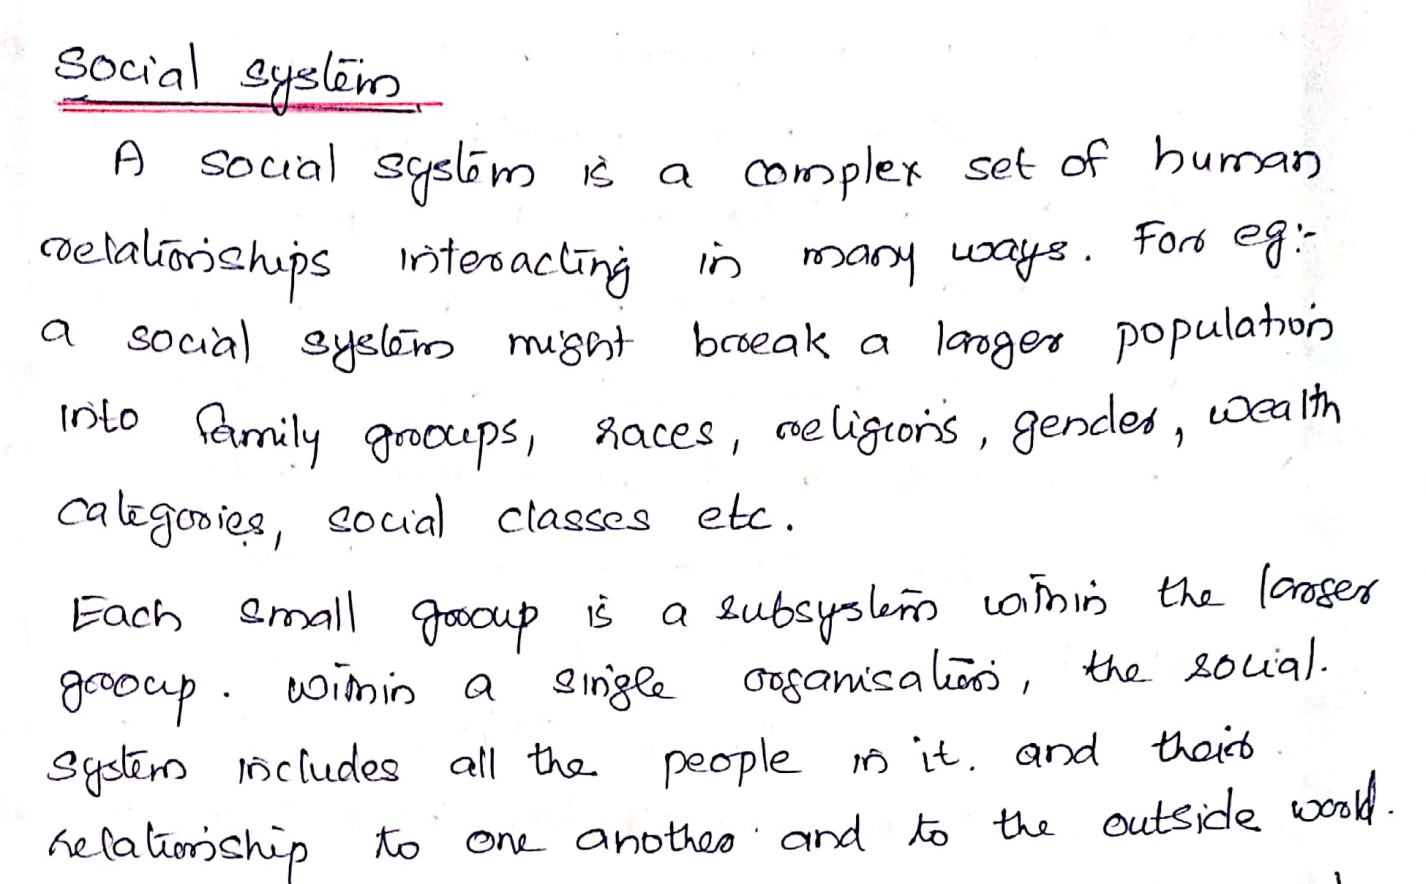 Social system
A social system is a complex set of human
relationships interacting in many ways. For eg:-
a social system might break a larger population
into family groups, races, religions, gender, wealth
categories, social classes etc.
Each small group is a subsystem within the larger
group. within a single organisation, the social.
system includes all the people in it. and their
relationship to one another and to the outside world.